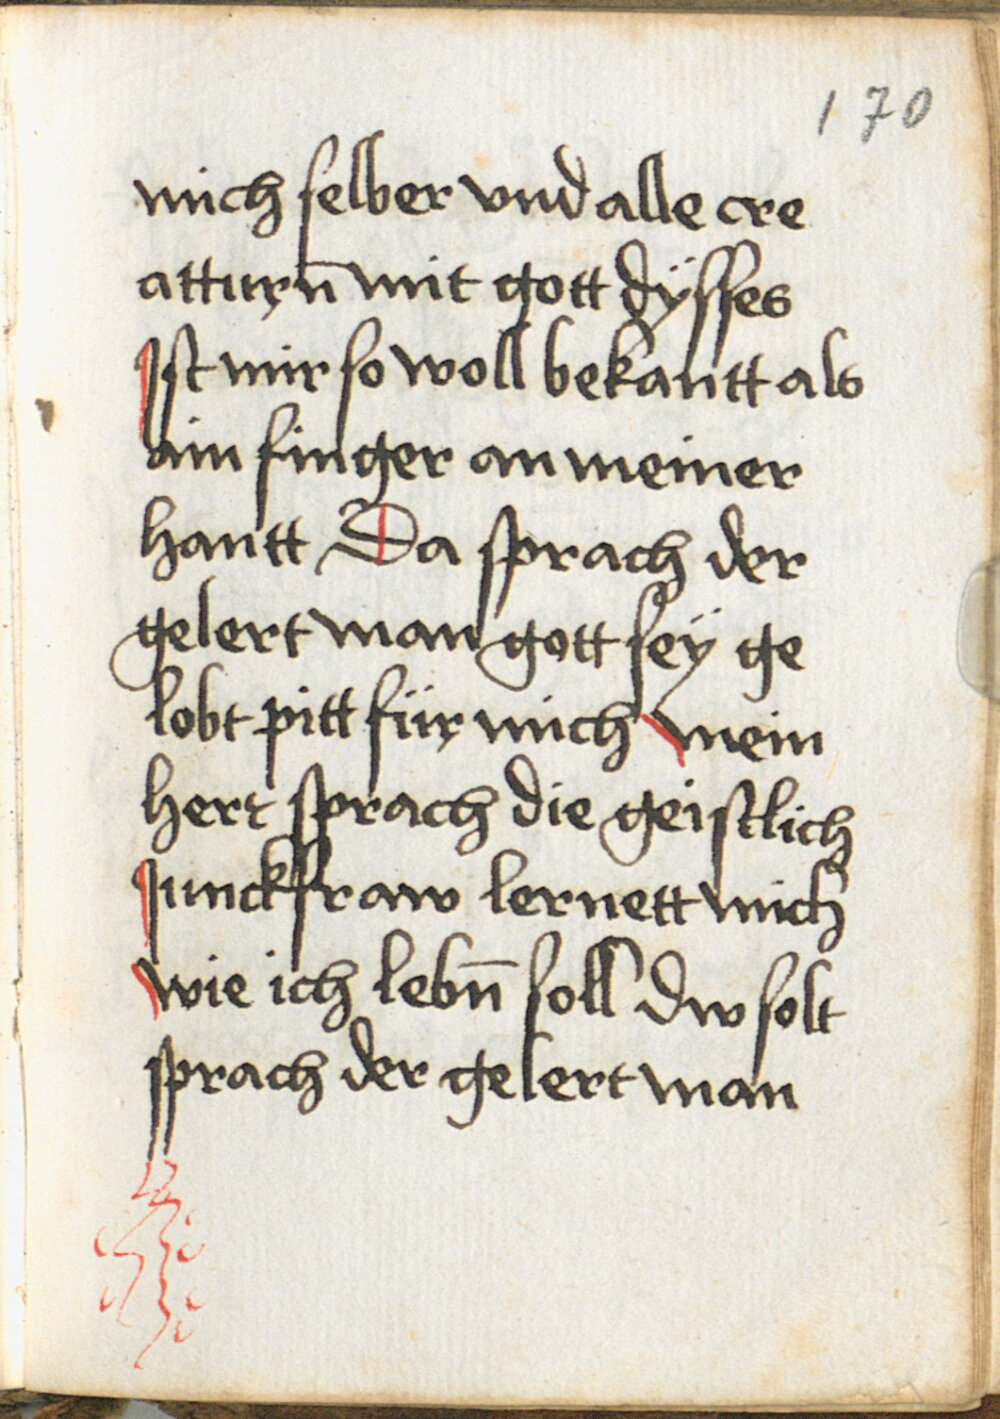 170
mich selber vnd alle cre
atturn̄ mit gott dÿsses
Jst mir so woll bekantt als
ain finger an meiner
hantt Da sprach der
gelert man gott seÿ ge
lobt pitt für mich mein
hert sprach die geistlich
junckfraw lernett mich
wie ich lebn̄ soll dw solt
sprach der gelert man